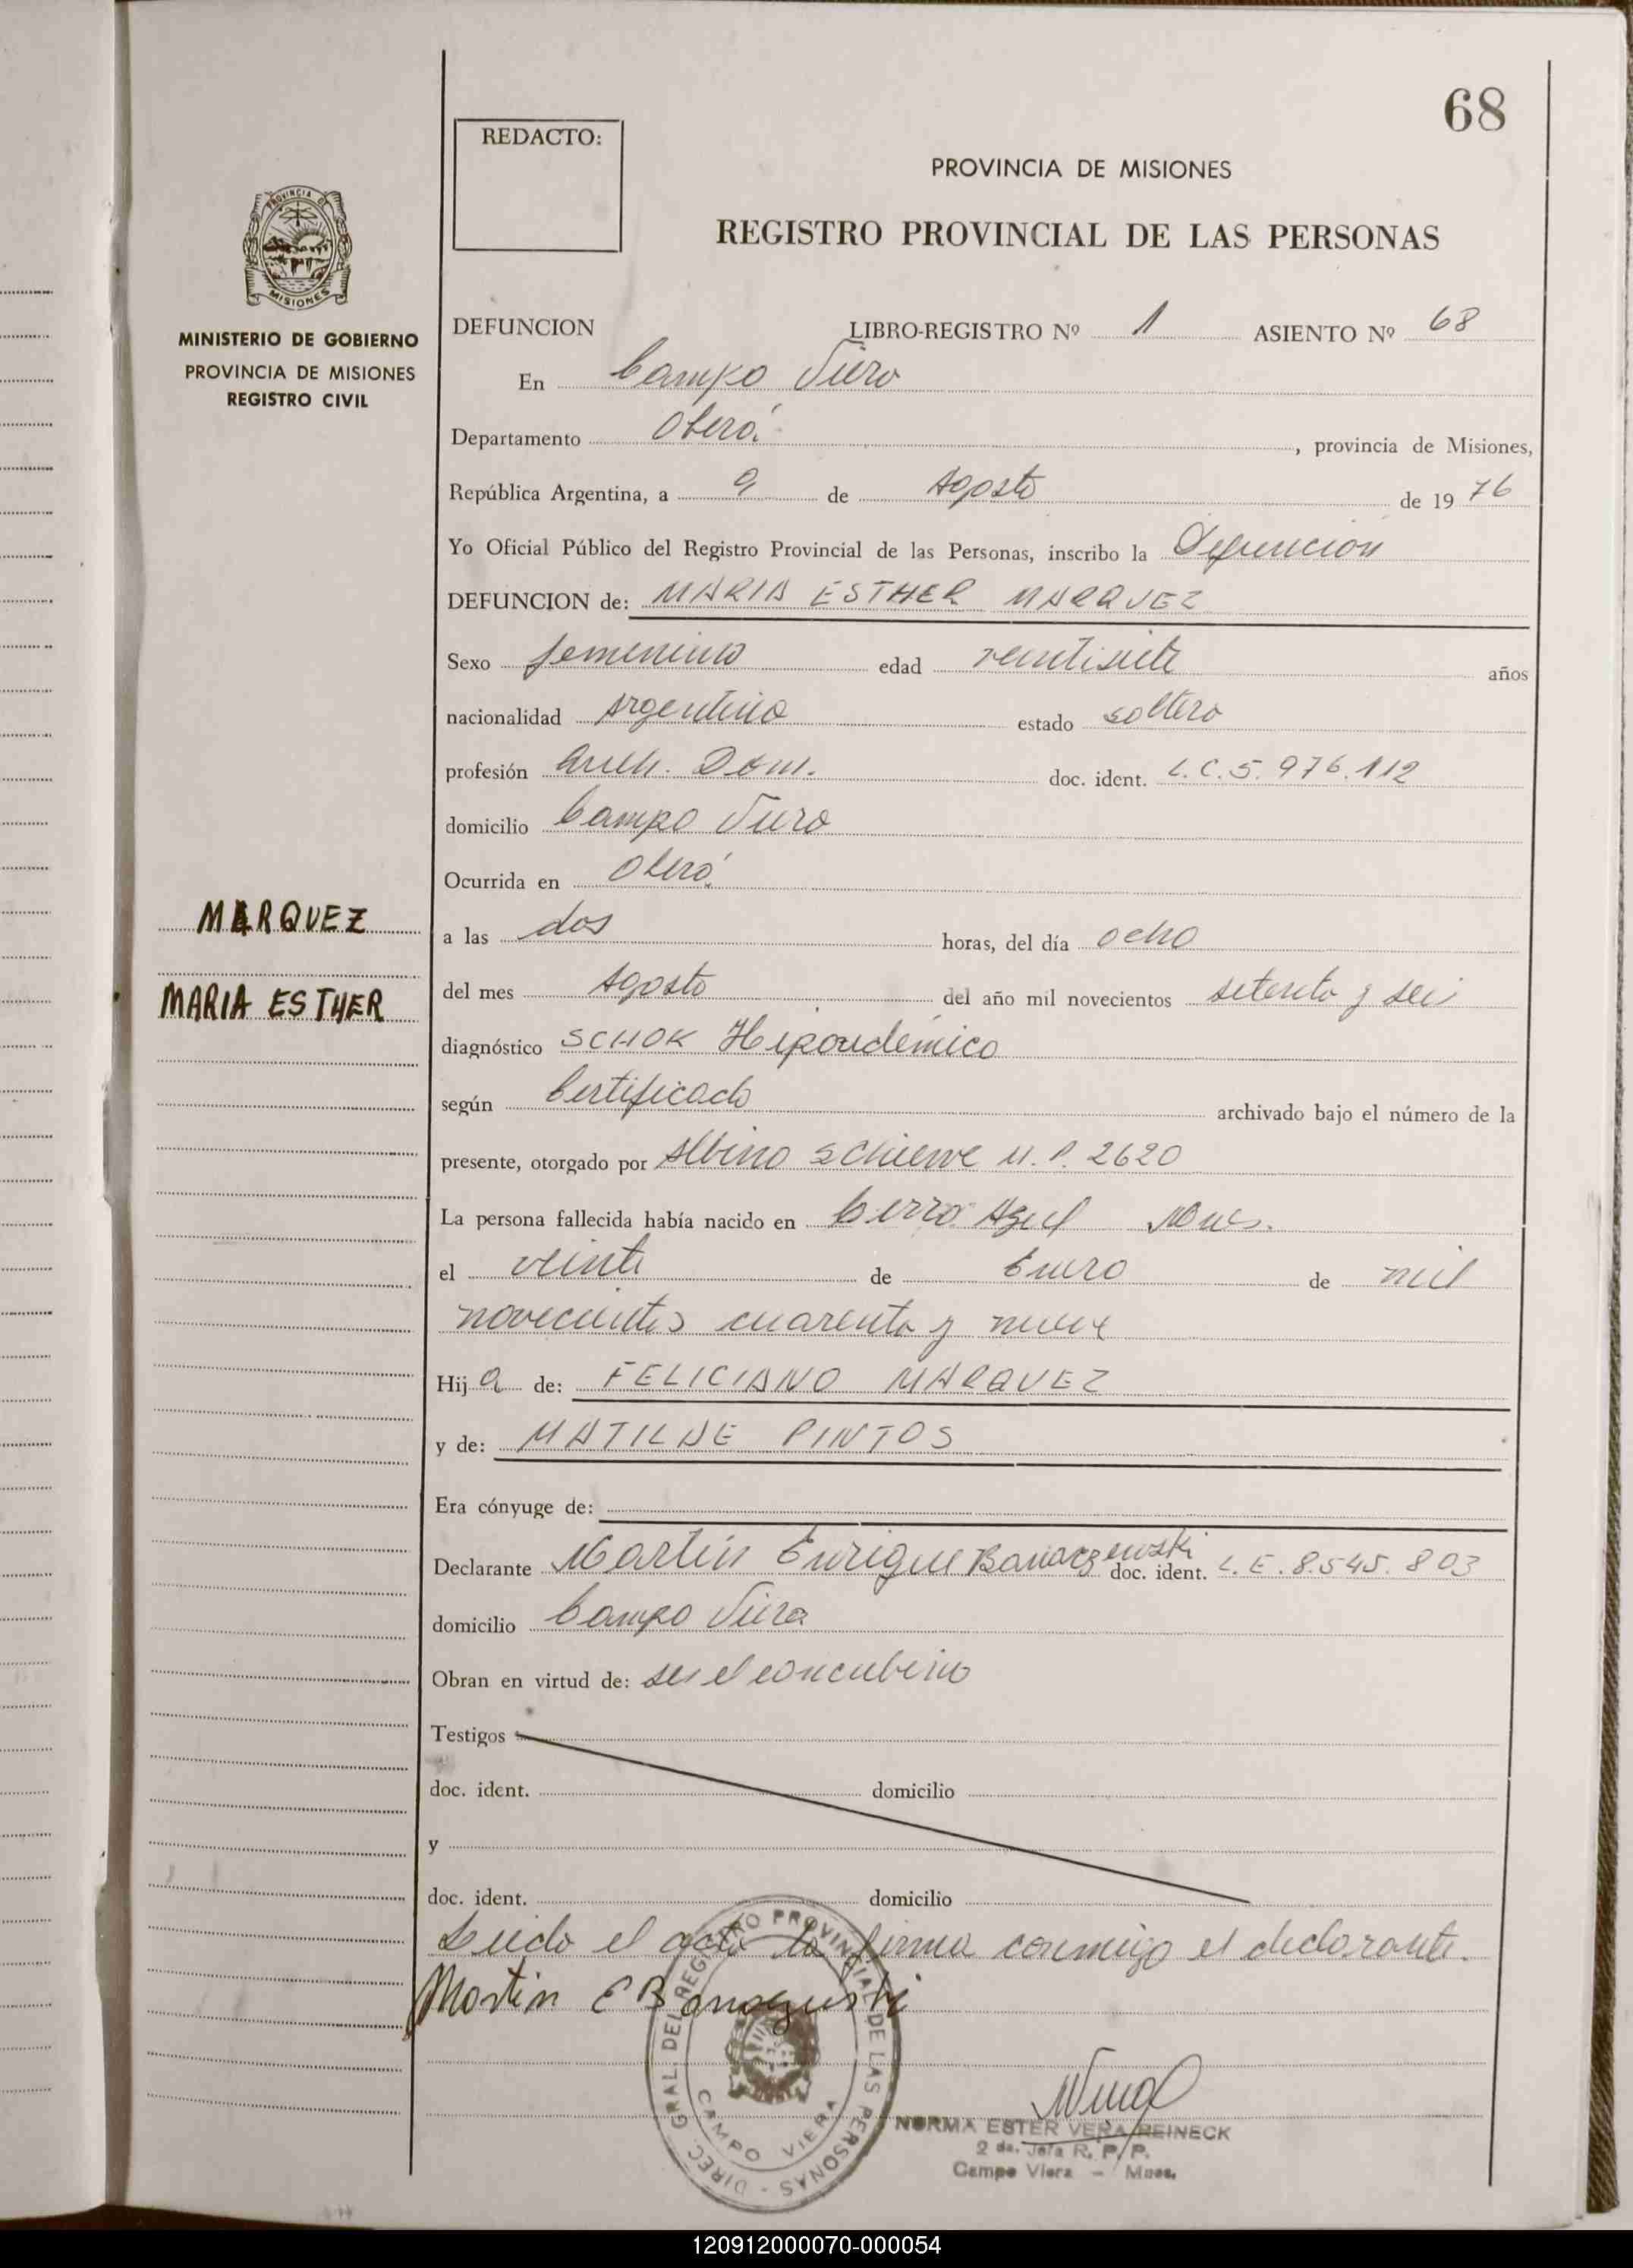 68
REDACTO:
PROVINCIA DE MISIONES
REGISTRO PROVINCIAL DE LAS PERSONAS
PROVINCIA DE MISIONES
MINISTERIO DE GOBIERNO
PROVINCIA DE MISIONES
REGISTRO CIVIL
DEFUNCION LIBRO-REGISTRO Nº 1 ASIENTO Nº 68
En Campo Viera
Departamento Oberá, provincia de Misiones,
República Argentina, a 9 de Agosto de 1976
Yo Oficial Público del Registro Provincial de las Personas, inscribo la Defunción
DEFUNCION de: MARIA ESTHER MARQUEZ
Sexo femenino edad veintisiete años
nacionalidad Argentina estado soltera
profesión Dom. doc. ident. L.C. 5.976.112
domicilio Campo Viera
Ocurrida en Oberá
MARQUEZ
a las dos horas, del día ocho
MARIA ESTHER
del mes Agosto del año mil novecientos setenta y seis
diagnóstico SCHOK
según Certificado archivado bajo el número de la
presente, otorgado por Albino M.P. 2620
La persona fallecida había nacido en Cerro Azul Mnes.
el veinte de Enero de mil
novecientos cuarenta y nueve
Hija de: FELICIANO MARQUEZ
y de: MATILDE PINTOS
Era cónyuge de:
Declarante Martin Enrique doc. ident. L.E. 8.545.803
domicilio Campo Viera
Obran en virtud de: ser el concubino
Testigos
doc. ident. domicilio
y
doc. ident. domicilio
Leido el acta la firma conmigo el declarante.
Martin E
DIREC. GRAL DEL REGISTRO PROVINCIAL DE LAS PERSONAS -
CAMPO VIERA
NORMA ESTER VERA REINECK
2 da. Jefa R. P. P.
Campo Viera - Mnes.
120912000070-000054